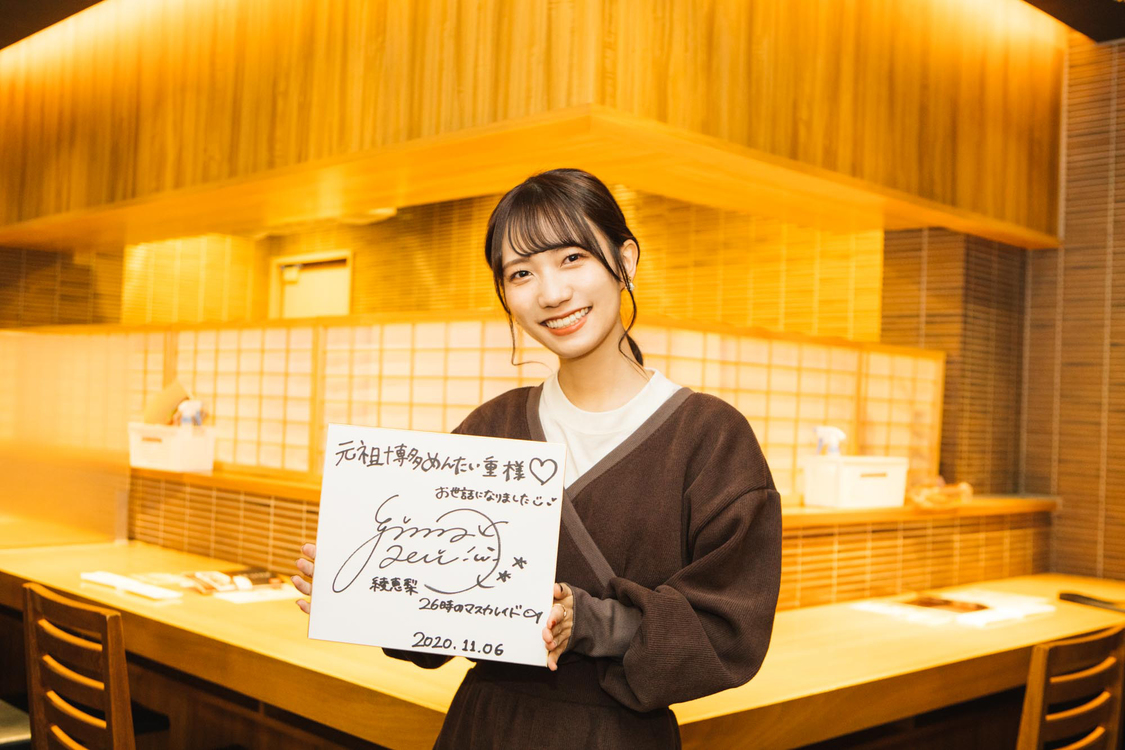 元祖博多めんたい重様♡
お世話になりました
綾恵梨
26時のマスカレイド
2020.11.06